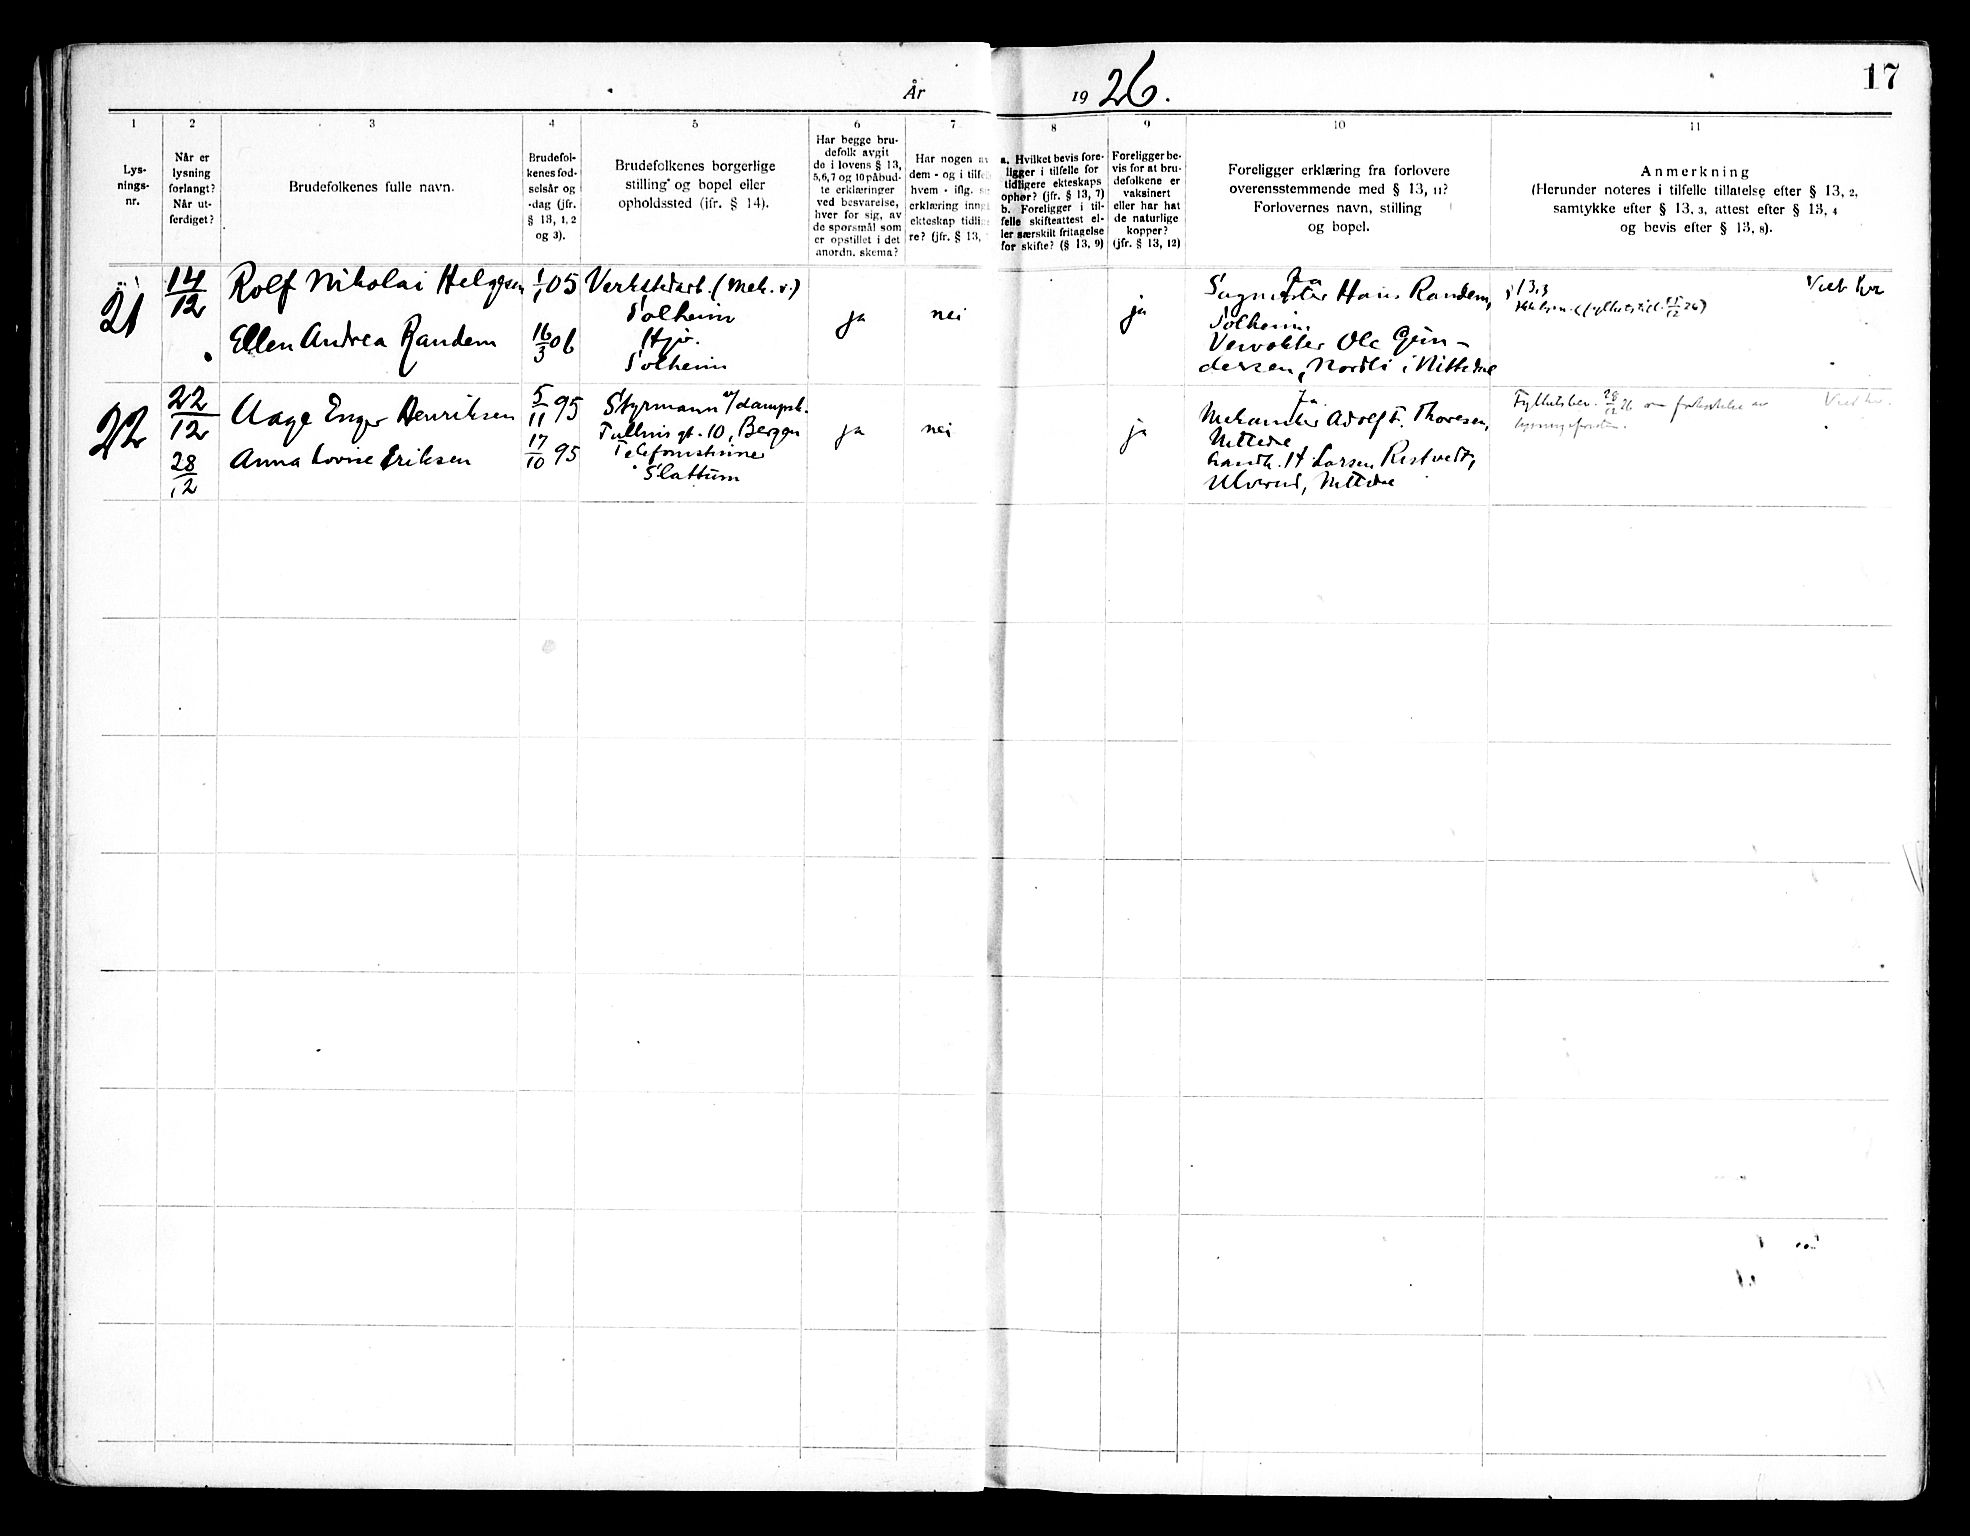 År 1926.
17
1
2
3
4
5
6
7
8
9
10
11
Lys-
nings-
nr.
Når er
lysning
forlangt?
Når ut-
ferdiget?
Brudefolkenes fulle navn.
Brudefol-
kenes fød-
selsår og
-dag (jfr.
§ 13, 1, 2
og 3).
Brudefolkenes borgerlige
stilling og bopel eller
opholdssted (jfr. § 14).
Har begge bru-
defolk avgit
de i lovens § 13,
5, 6, 7 og 10 påbud-
te erklæringer
ved besvarelse,
hver for sig, av
de spørsmål som
er opstillet i det
anordn. skema?
Har nogen av
dem - og i tilfel
hvem - iflg.
erklæring inng
ekteskap tidlig
re? (jfr. § 13,
a. Hvilket bevis fore-
ligger i tilfelle for
tidligere ekteskaps
ophør? (jfr. § 13, 7)
b. Foreligger i til-
felle skifteattest el-
ler særskilt fritagelse
for skifte? (§ 13, 9)
Foreligger be-
vis for at bru-
defolkene er
vaksinert
eller har hat
de naturlige
kopper?
(jfr. § 13, 12)
Foreligger erklæring fra forlovere
overensstemmende med § 13, 11?
Forlovernes navn, stilling
og bopel.
Anmerkning
(Herunder noteres i tilfelle tillatelse efter § 13, 2,
samtykke efter § 13, 3, attest efter § 13, 4
og bevis efter § 13, 8).
21
14/12
Rolf Nikolai Helgesen
Ellen Andrea Randem
1/1 05
16/3 06
Verkstedarb. (mek. v.)
Solheim
Hjv.
Solheim
ja
nei
ja
Ja
Sagmester Hans Randem,
Solheim
Ole Gun-
dersen, Nordli i Nittedal
§ 13,3
Viet her
22
22/12
28/12
Aage Enger Henriksen
Anna Lovise Eriksen
5/11 95
17/10 95
Styrmann a/ dampsk.
Tullins gt. 10, Bergen
Telefonistinne
Slattum
ja
nei
ja
Ja.
Mekaniker Adolf F. Thoresen,
Nittedal
Handh. H. Larsen Ristvedt,
Ulverud, Nittedal
Fylkesbev. 28/12 26 om forkortelse av
lysningsfristen.
Viet her.